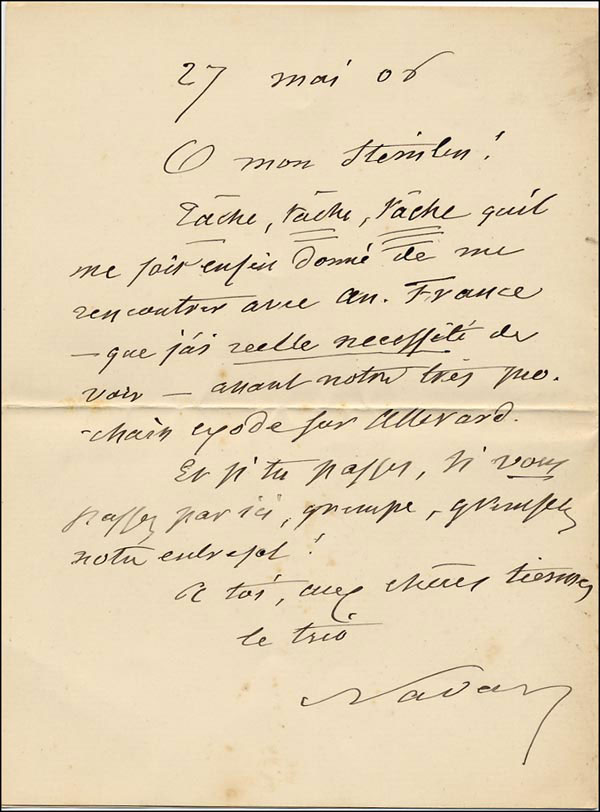 27 mai 06
O mon Steinlen!
Tâche, tâche, tâche qu'il
me soit enfin donné de me
rencontrer avec An. France
— que j'ai réelle necessité de
voir — avant notre très pro-
chain exode sur Allevard.
Et si tu passes, si vous
passez par ici, grimpe, grimpez
notre entresol!
A toi, aux chères tiennes
le trio
Nadar